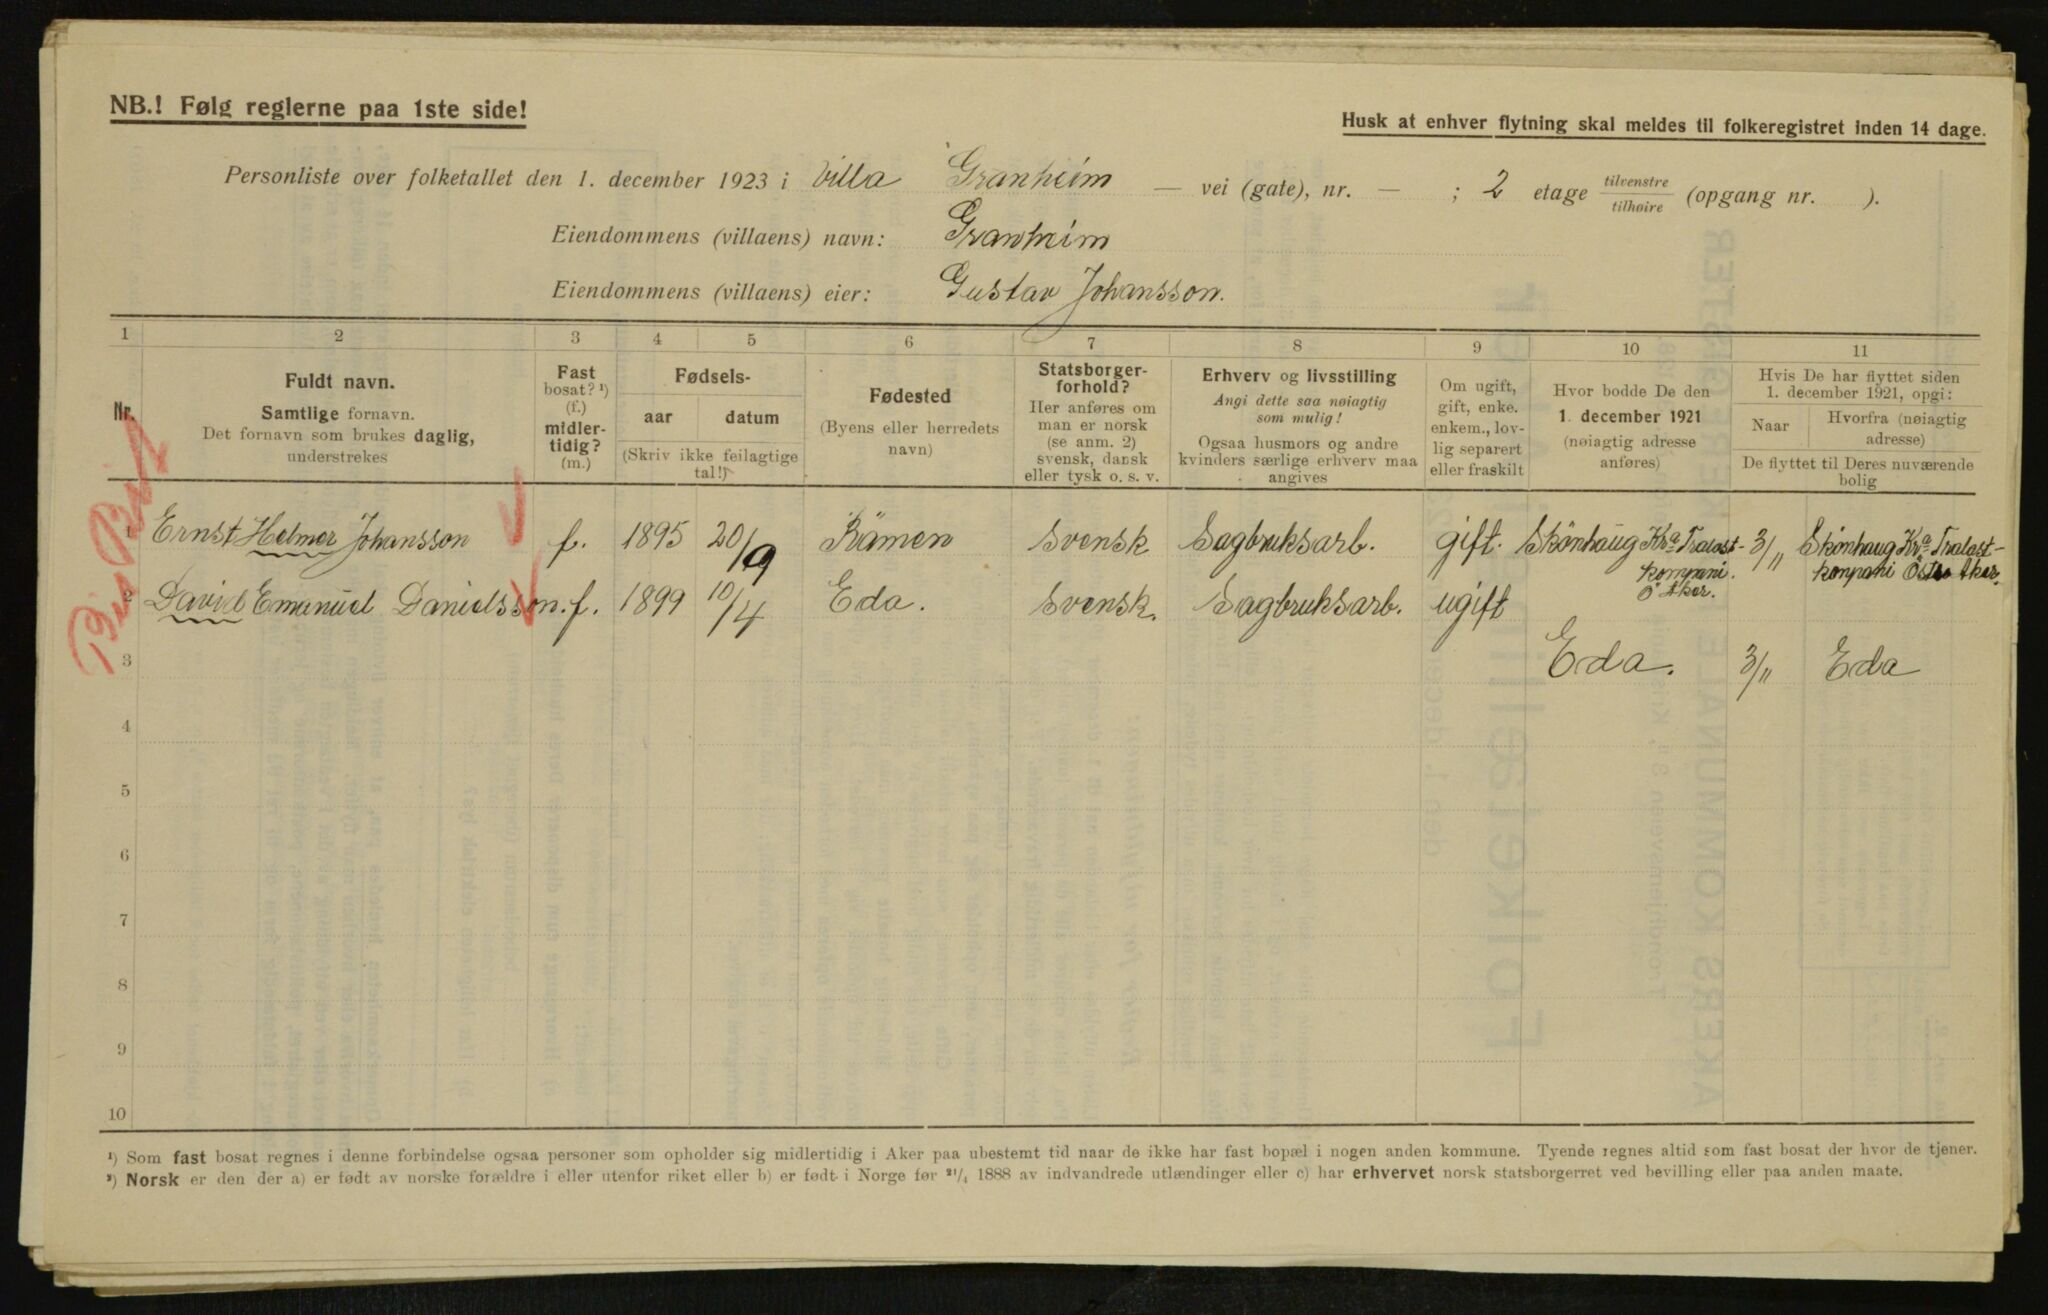 NB.! Følg reglerne paa 1ste side!
Husk at enhver flytning skal meldes til folkeregistret inden 14 dage.
Personliste over folketallet den 1. december 1923 i Villa Granheim — vei (gate), nr. — ; 2 etage tilvenstre / tilhøire (opgang nr. ).
Eiendommens (villaens) navn: Granheim
Eiendommens (villaens) eier: Gustav Johansson.
1 2 3 4 5 6 7 8 9 10 11
Nr.
Fuldt navn.
Samtlige fornavn.
Det fornavn som brukes daglig,
understrekes
Fast
bosat? ¹)
(f.)
midler-
tidig?
(m.)
Fødsels-
aar datum
(Skriv ikke feilagtige
tal!)
Fødested
(Byens eller herredets
navn)
Statsborger-
forhold?
Her anføres om
man er norsk
(se anm. 2)
svensk, dansk
eller tysk o. s. v.
Erhverv og livsstilling
Angi dette saa nøiagtig
som mulig!
Ogsaa husmors og andre
kvinders særlige erhverv maa
angives
Om ugift,
gift, enke.
enkem., lov-
lig separert
eller fraskilt
Hvor bodde De den
1. december 1921
(nøiagtig adresse
anføres)
Hvis De har flyttet siden
1. december 1921, opgi:
Naar
Hvorfra (nøiagtig
adresse)
De flyttet til Deres nuværende
bolig
1 Ernst Helmer Johansson f. 1895 20/9 Rämen Svensk Sagbruksarb. gift. Skönhaug Kra Tralast- 3/11 Skönhaug Kra Tralast-
kompani. kompani Östre Aker.
Ö Aker.
2 David Emanuel Danielsson. f. 1899 10/4 Eda. Svensk. Sagbruksarb. ugift
3 Eda. 3/11 Eda
4
5
6
7
8
9
10
¹) Som fast bosat regnes i denne forbindelse ogsaa personer som opholder sig midlertidig i Aker paa ubestemt tid naar de ikke har fast bopæl i nogen anden kommune. Tyende regnes altid som fast bosat der hvor de tjener.
²) Norsk er den der a) er født av norske forældre i eller utenfor riket eller b) er født i Norge før ²¹/₄ 1888 av indvandrede utlændinger eller c) har erhvervet norsk statsborgerret ved bevilling eller paa anden maate.